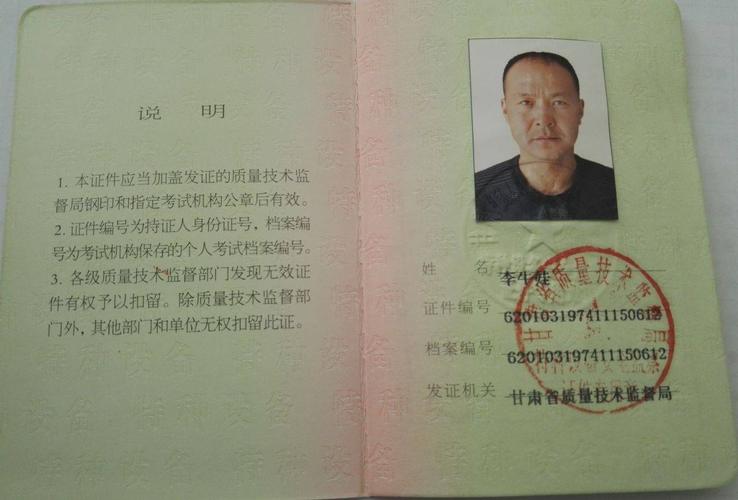 说 明
1. 本证件应当加盖发证的质量技术监
督局钢印和指定考试机构公章后有效。
2. 证件编号为持证人身份证号，档案编
号为考试机构保存的个人考试档案编号。
3. 各级质量技术监督部门发现无效证
件有权予以扣留。除质量技术监督部
门外，其他部门和单位无权扣留此证。
姓 名 李牛娃
证件编号 620103197411150612
档案编号 620103197411150612
发证机关 甘肃省质量技术监督局